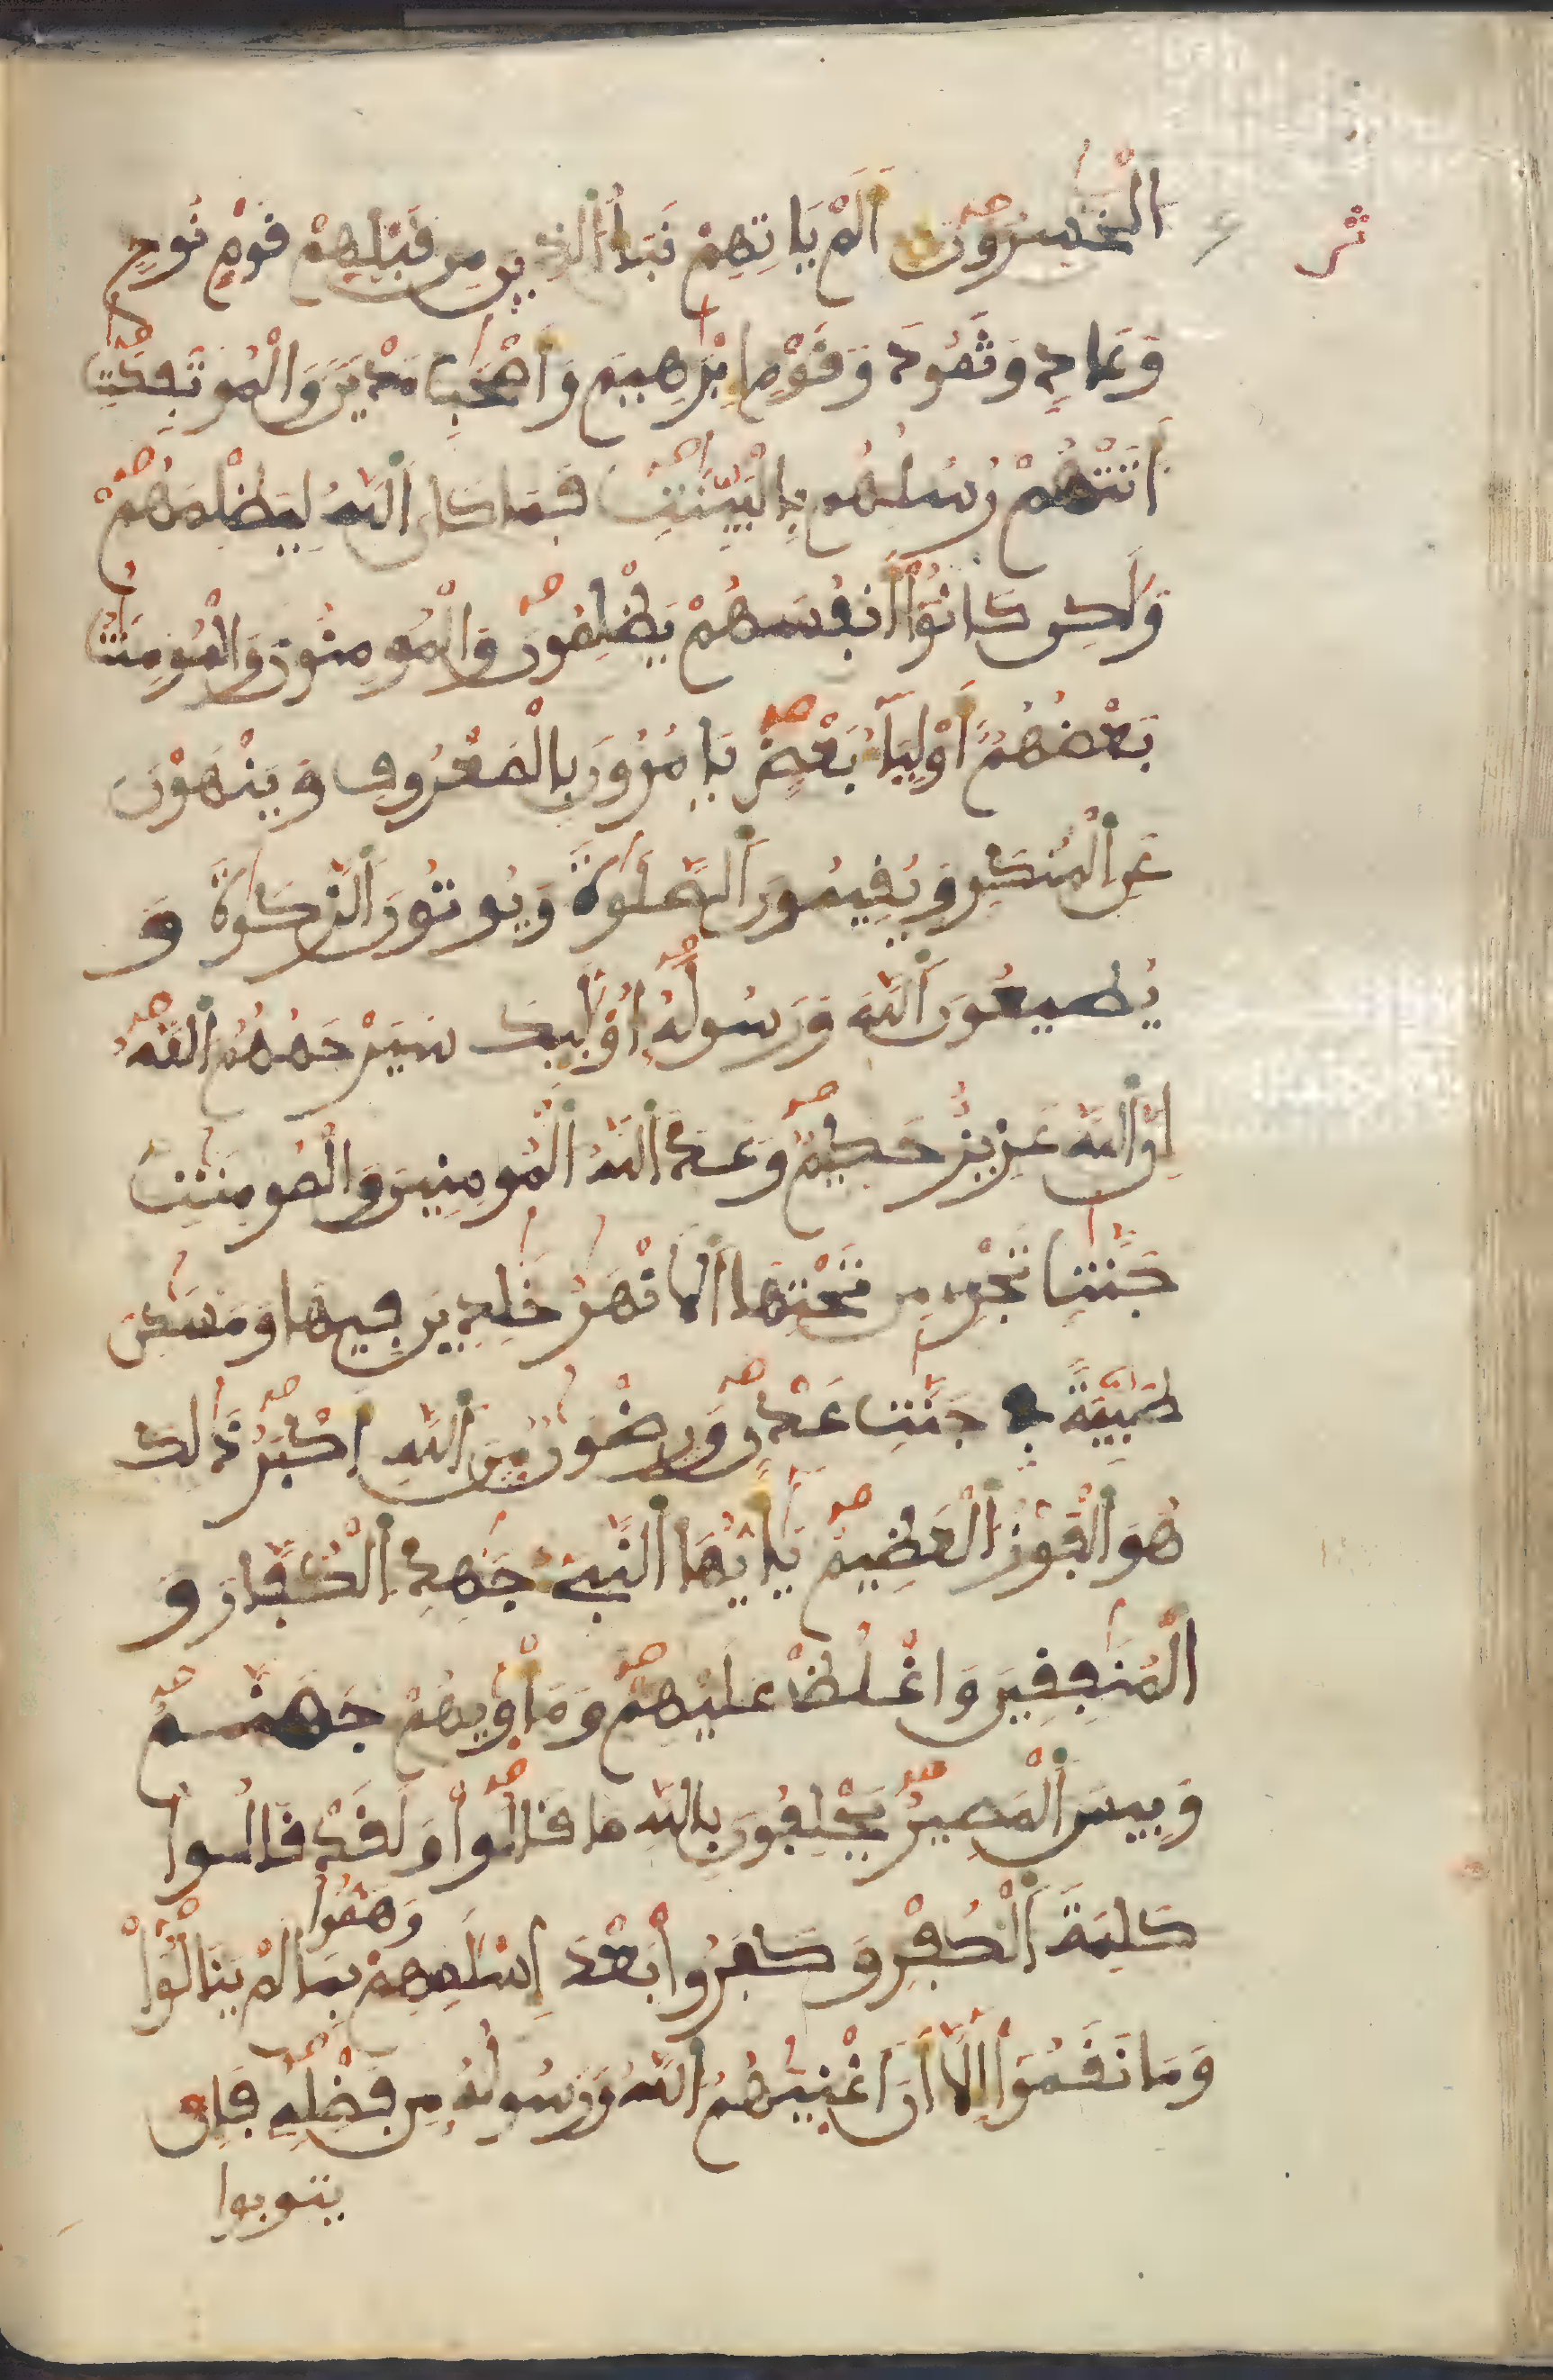 الْخَسِرُونَ أَلَمْ يَاتِهِمْ نَبَأُ الذِينَ مِن قَبْلِهِمْ قَوْمِ نُوحٍ
وَعَادٍ وَثَمُودَ وَقَوْمِ إِبْرَهِيمَ وَأَصْحَبِ مَدْيَنَ وَالْمُوتَفِكَتِ
أَتَتْهُمْ رُسُلُهُم بِالْبَيِّنَتِ فَمَا كَانَ اللَّهُ لِيَظْلِمَهُمْ
وَلَكِن كَانُوا أَنفُسَهُمْ يَظْلِمُونَ وَالْمُومِنُونَ وَالْمُومِنَتُ
بَعْضُهُمُ أَوْلِيَاءُ بَعْضٍ يَامُرُونَ بِالْمَعْرُوفِ وَيَنْهَوْنَ
عَنِ الْمُنكَرِ وَيُقِيمُونَ الصَّلَوةَ وَيُوتُونَ الزَّكَوةَ وَ
يُطِيعُونَ اللَّهَ وَرَسُولَهُ أُوْلَئِكَ سَيَرْحَمُهُمُ اللَّهُ
إِنَّ اللَّهَ عَزِيزٌ حَكِيمٌ وَعَدَ اللَّهُ الْمُومِنِينَ وَالْمُومِنَتِ
جَنَّتٍ تَجْرِي مِن تَحْتِهَا الْأَنْهَرُ خَلِدِينَ فِيهَا وَمَسَكِنَ
طَيِّبَةً فِي جَنَّتِ عَدْنٍ وَرِضْوَنٌ مِّنَ اللَّهِ أَكْبَرُ ذَلِكَ
هُوَ الْفَوْزُ الْعَظِيمُ يَأَيُّهَا النَّبِيءُ جَهِدِ الْكُفَّارَ وَ
الْمُنَفِقِينَ وَاغْلُظْ عَلَيْهِمْ وَمَأْوِيهُمْ جَهَنَّمُ
وَبِيسَ الْمَصِيرُ يَحْلِفُونَ بِاللَّهِ مَا قَالُوا وَلَقَدْ قَالُوا
كَلِمَةَ الْكُفْرِ وَكَفَرُوا بَعْدَ إِسْلَمِهِمْ وَهَمُّوا بِمَا لَمْ يَنَالُوا
وَمَا نَقَمُوا إِلَّا أَنَ أَغْنِيهُمُ اللَّهُ وَرَسُولُهُ مِن فَضْلِهِ فَإِن
يتوبوا